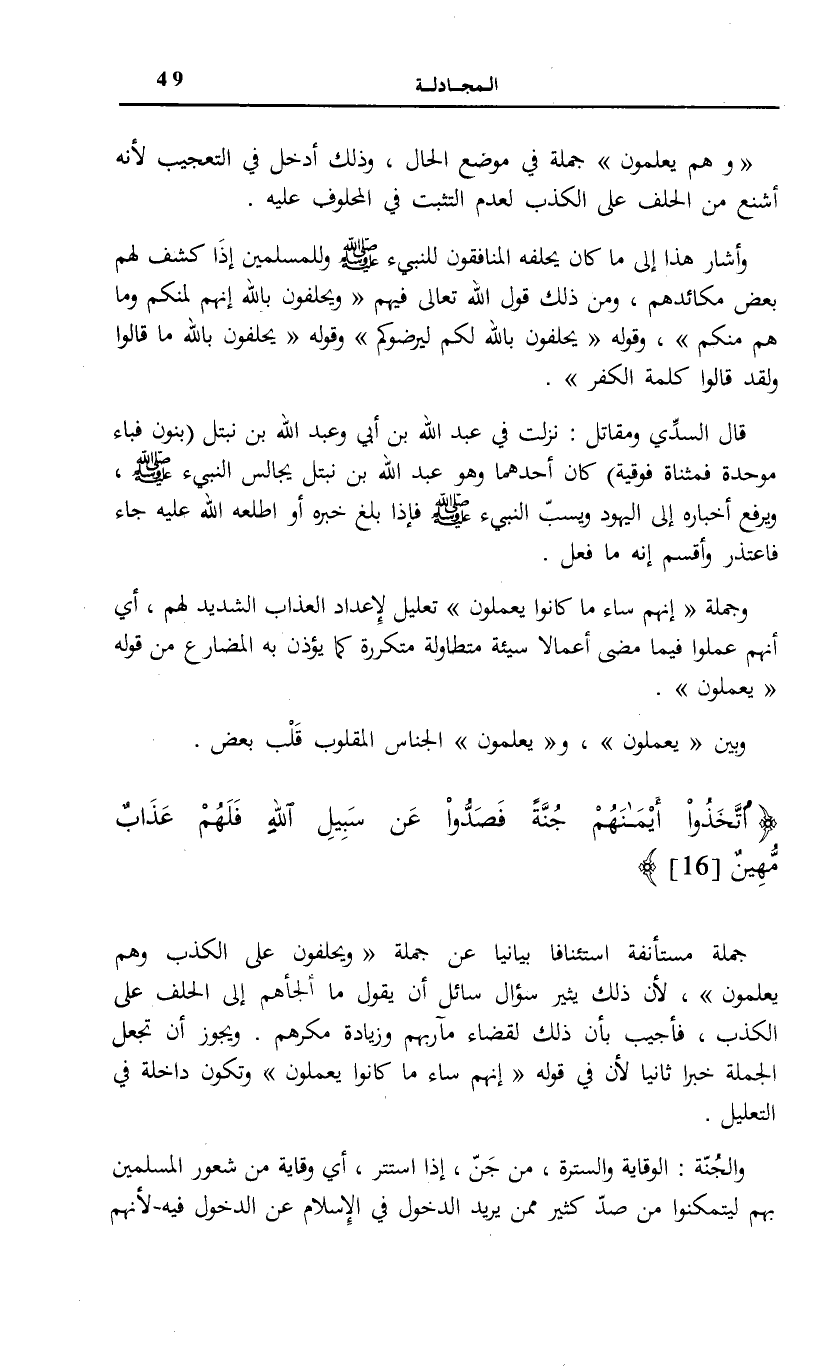 المجادلة 49
« و هم يعلمون » جملة في موضع الحال ، وذلك أدخل في التعجيب لأنه
أشنع من الحلف على الكذب لعدم التثبت في المحلوف عليه .
وأشار هذا إلى ما كان يحلفه المنافقون للنبيء ﷺ وللمسلمين إذَا كشف لهم
بعض مكائدهم ، ومن ذلك قول الله تعالى فيهم « ويحلفون بالله إنهم لمنكم وما
هم منكم » ، وقوله « يحلفون بالله لكم ليرضوكم » وقوله « يحلفون بالله ما قالوا
ولقد قالوا كلمة الكفر » .
قال السدِّي ومقاتل : نزلت في عبد الله بن أبي وعبد الله بن نبتل (بنون فباء
موحدة فمثناة فوقية) كان أحدهما وهو عبد الله بن نبتل يجالس النبيء ﷺ ،
ويرفع أخباره إلى اليهود ويسبّ النبيء ﷺ فإذا بلغ خبره أو اطلعه الله عليه جاء
فاعتذر وأقسم إنه ما فعل .
وجملة « إنهم ساء ما كانوا يعملون » تعليل لإعداد العذاب الشديد لهم ، أي
أنهم عملوا فيما مضى أعمالا سيئة متطاولة متكررة كما يؤذن به المضارع من قوله
« يعملون » .
وبين « يعملون » ، و« يعلمون » الجناس المقلوب قَلْب بعض .
﴿ ٱتَّخَذُواْ أَيْمَـٰنَهُمْ جُنَّةً فَصَدُّواْ عَن سَبِيلِ ٱللَّهِ فَلَهُمْ عَذَابٌ
مُّهِينٌ [16] ﴾
جملة مستأنفة استئنافا بيانيا عن جملة « ويحلفون على الكذب وهم
يعلمون » ، لأن ذلك يثير سؤال سائل أن يقول ما ألجأهم إلى الحلف على
الكذب ، فأجيب بأن ذلك لقضاء مآربهم وزيادة مكرهم . ويجوز أن تجعل
الجملة خبرا ثانيا لأن في قوله « إنهم ساء ما كانوا يعملون » وتكون داخلة في
التعليل .
والجُنّة : الوقاية والسترة ، من جَنّ ، إذا استتر ، أي وقاية من شعور المسلمين
بهم ليتمكنوا من صدّ كثير ممن يريد الدخول في الإسلام عن الدخول فيه-لأنهم